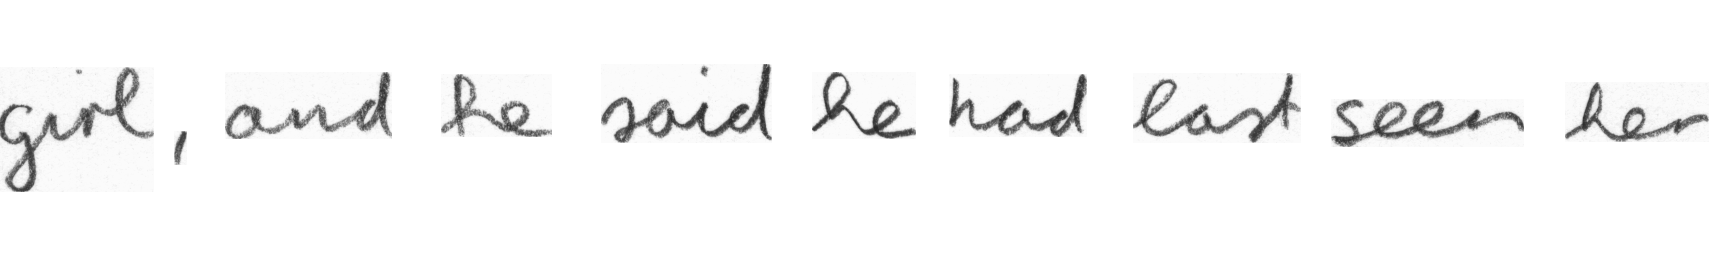 girl, and he said he had last seen her